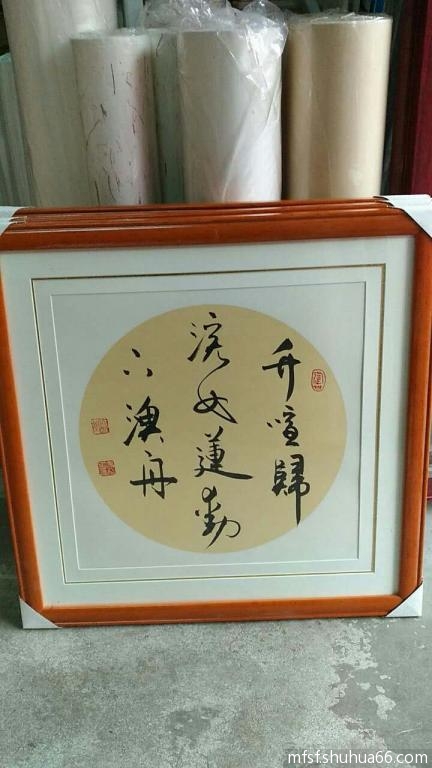 竹喧歸
浣女蓮動
下漁舟
mfsfshuhua66.com